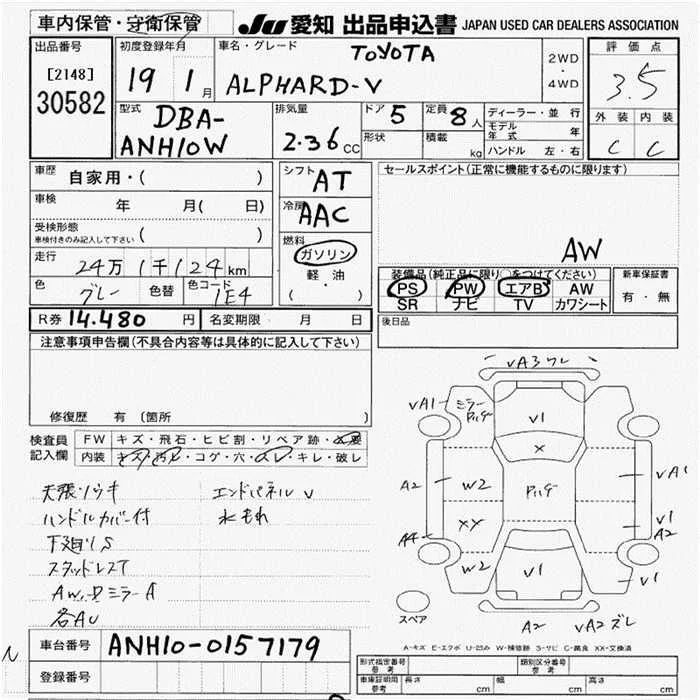 車内保管・守衛保管 JU 愛知 出品申込書 JAPAN USED CAR DEALERS ASSOCIATION
出品番号 初度登録年月 車名・グレード TOYOTA 2WD 評価点
[2148] 19 1月 ALPHARD-V ・ 3.5
30582 4WD
外装 内装
型式 DBA- 排気量 ドア 5 定員 8人 ディーラー・並行 C C
ANH10W 2.36cc 形状 積載 kg モデル年式 年
ハンドル 左・右
車歴 自家用・( ) シフト AT セールスポイント(正常に機能するものに限ります)
車検 年 月( 日) 冷房 AAC
受検形態 ( ) AW
車検付きのみ記入して下さい
燃料 ガソリン
走行 24万1千124km 軽油 装備品(純正品に限り○をつけてください) 新車保証書
色 グレー 色替 色コード 1E4 ( ) PS PW エアB AW 有・無
SR ナビ TV カワシート
R券 14.480円 名変期限 月 日 後日品
注意事項申告欄(不具合内容等は具体的に記入して下さい)
修復歴 有 (箇所
検査員 FW キズ・飛石・ヒビ割・リペア跡・
記入欄 内装 キズ・汚レ・コゲ・穴・スレ・キレ・破レ
天張ソウキ エンドパネル V
ハンドルカバー付 水もれ
下廻り S
スタッドレス T
ミラー A
各AU
VA3ワレ
VA1 ミラー
V1
X
A2 W2 VA1
XX V1
A4 A2
W2 V1 V1
スペア A2 VA2 ズレ
A-キズ E-エクボ U-凹み W-補修跡 S-サビ C-腐食 XX-交換済
車台番号 ANH10-0157179
登録番号
型式指定番号 参考 類別区分番号 参考
車庫証明用 参考 長さ cm 幅 cm 高さ cm